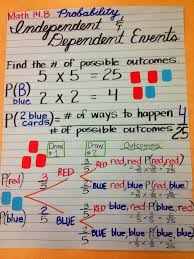 Math 14.8 Probability
Independent &
Dependent Events
Find the # of possible outcomes.
5 x 5 = 25
P(B)
blue 2/5
P(2 blue cards) = # of ways to happen 4
# of possible outcomes 25
Draw #1 Draw #2 Outcomes
3/5 RED red, red P(red, red)
P(red) 3/5
2/5 BLUE red, blue P(red, blue)
3/5 RED blue, red P(blue, red)
P(blue) 2/5
2/5 BLUE blue, blue P(blue, blue)